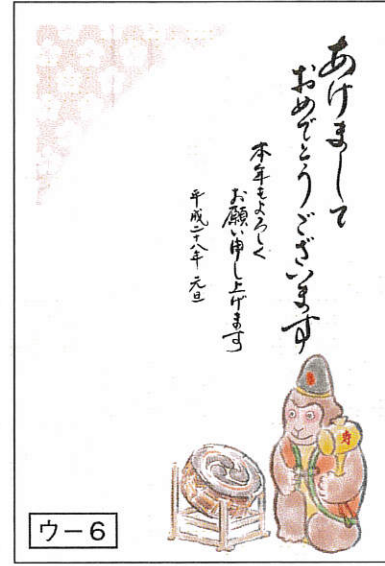 あけまして
おめでとうございます
本年もよろしく
お願い申し上げます
平成二十八年 元旦
寿
ウー6